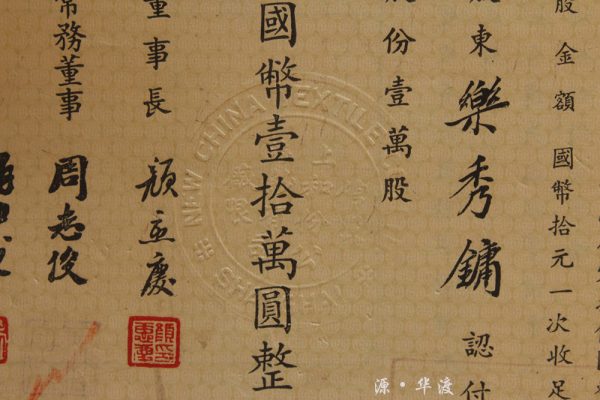 股金額 國幣拾元一次收足
股東樂秀鏞認付
股份壹萬股
國幣壹拾萬圓整
董事長 顏惠慶
常務董事 周志俊
NEW CHINA TEXTILE
源·华渡